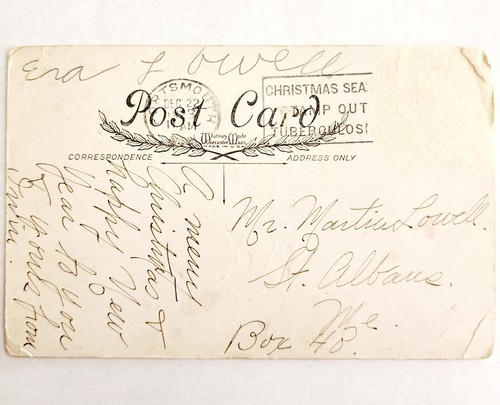 Era L Lowell
PORTSMOUTH
DEC 22
AM
CHRISTMAS SEA
STAMP OUT
TUBERCULOSI
Post Card
Whitney Made
Worcester Mass.
MADE IN U.S.A.
CORRESPONDENCE
ADDRESS ONLY
A merry
Christmas &
Happy New
Year to you
& yours from
Mr. Martin Lowell.
St. Albans.
Me.
Box 48.